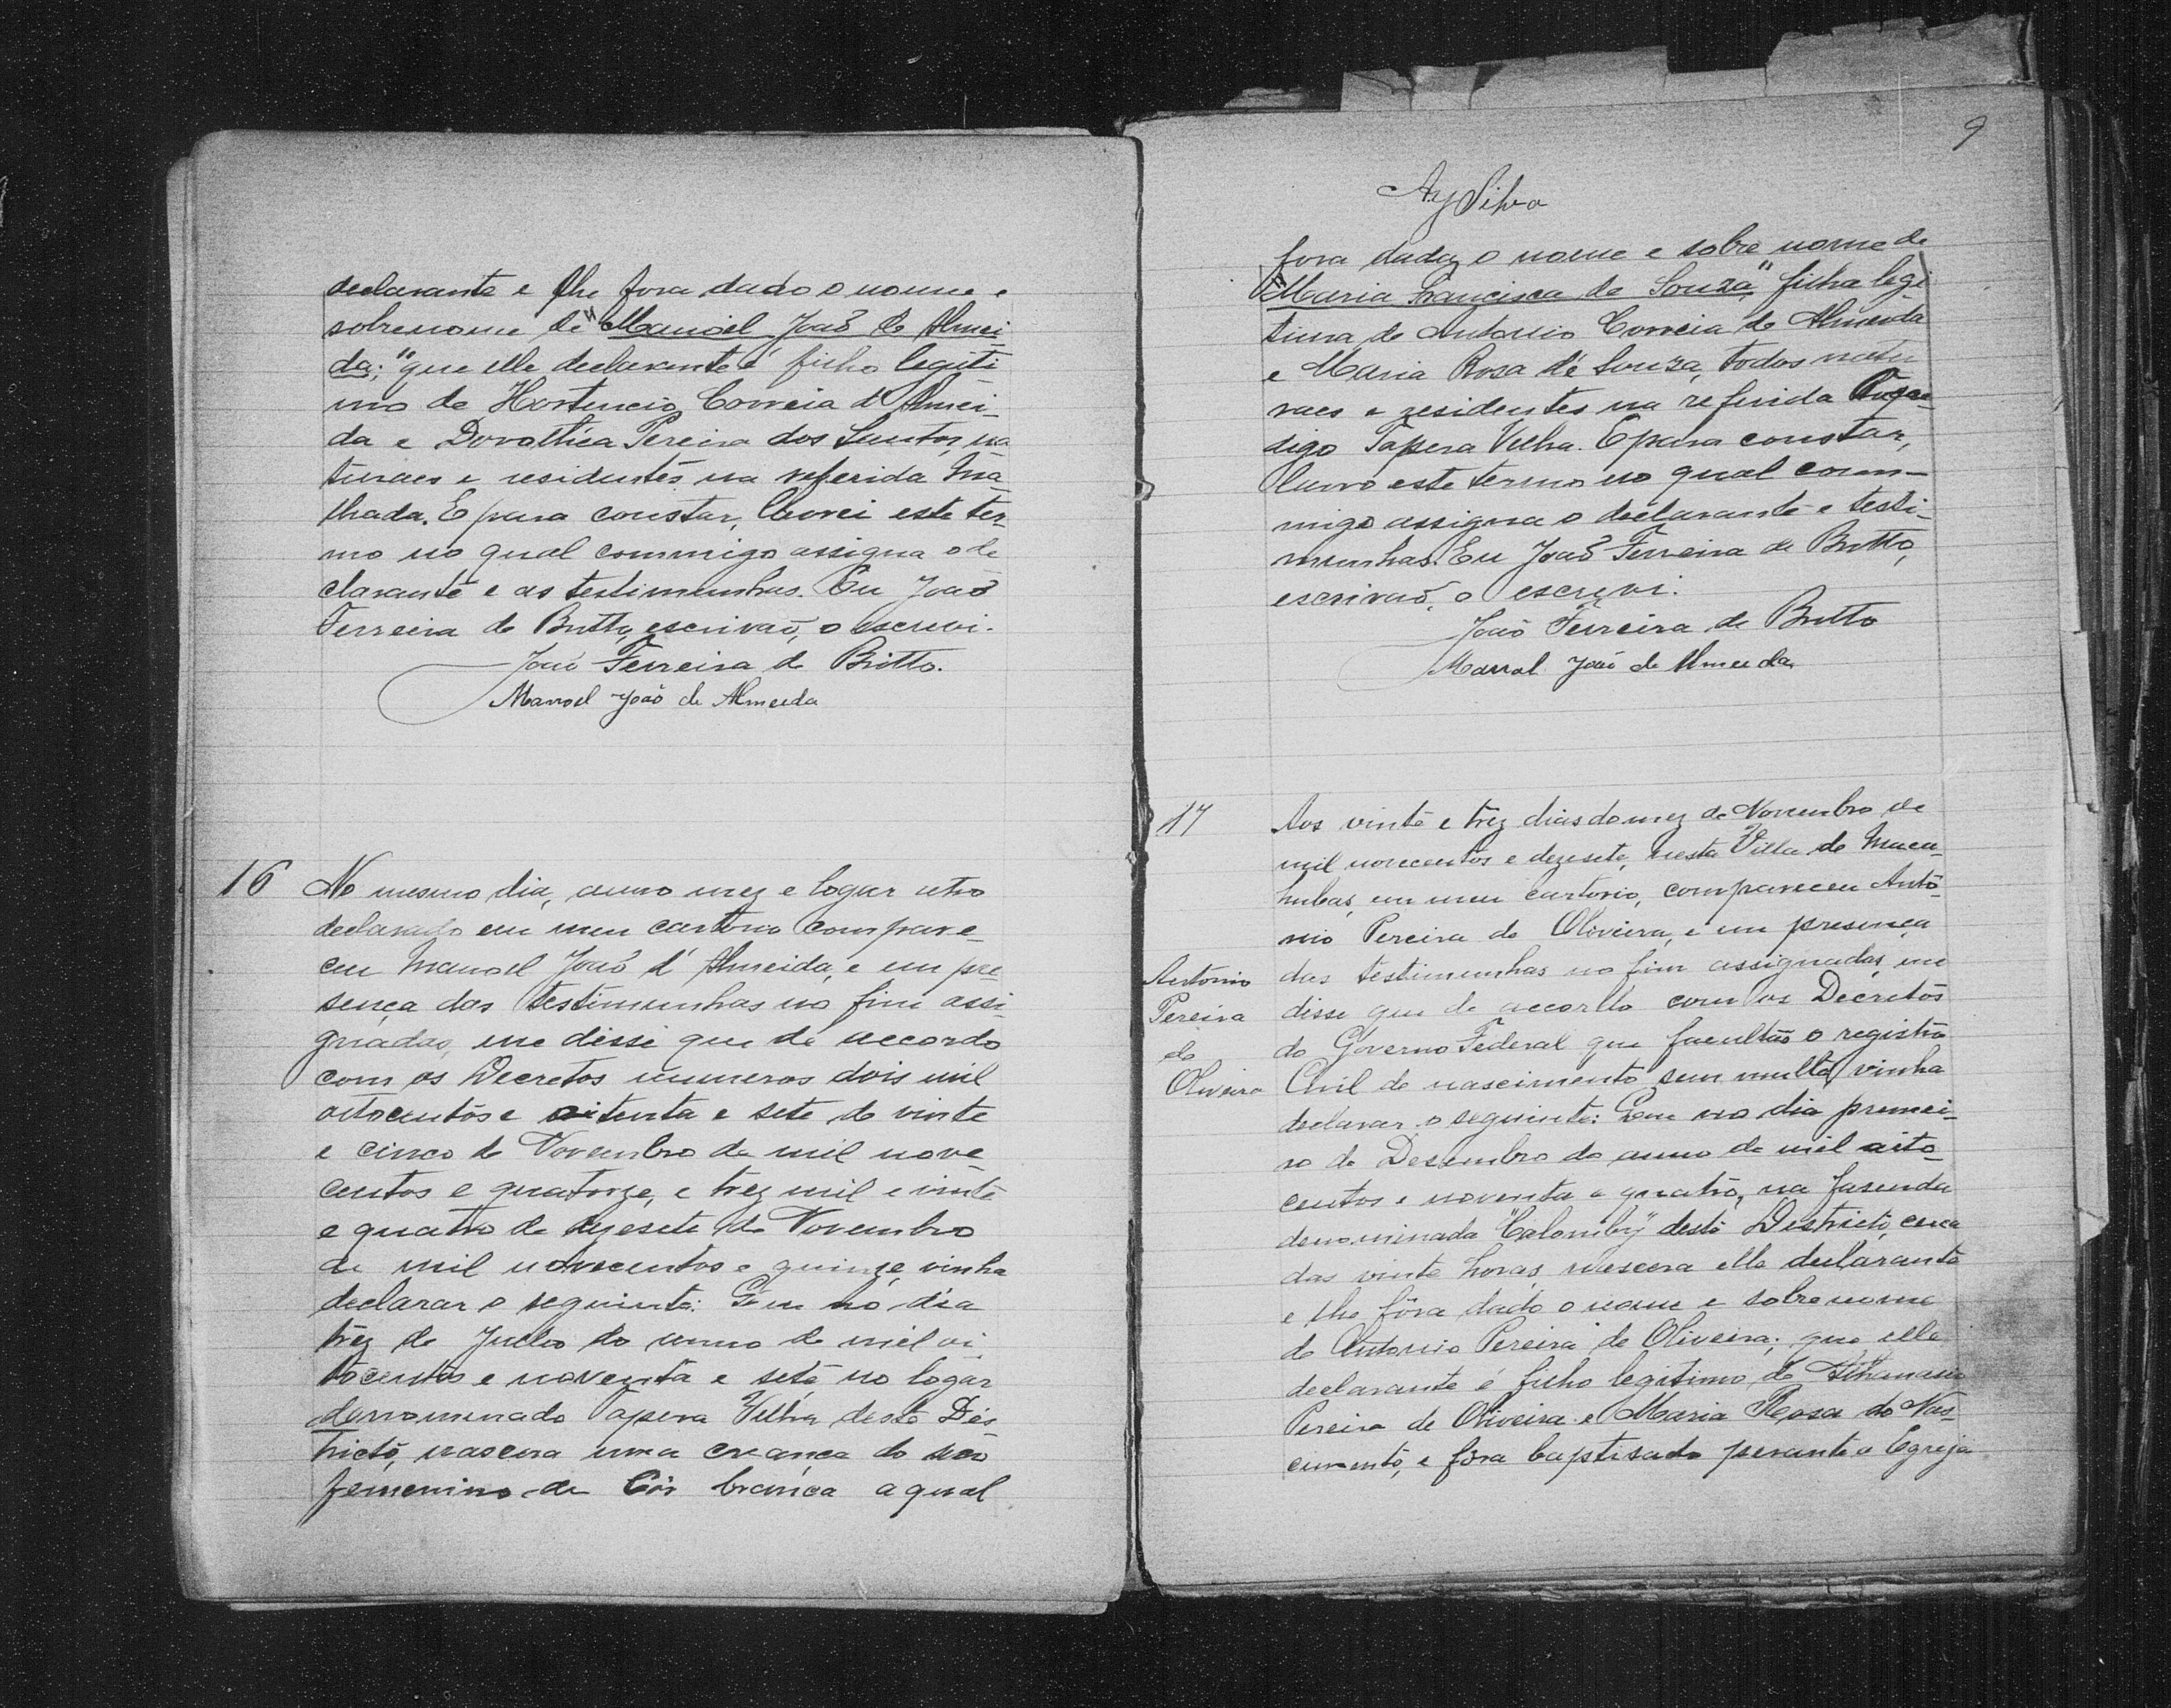 declarante e lhe fora dado o nome e
sobrenome de "Manoel João de Almei
da;" que elle declarante é filho legiti
mo de Hortencio Correia d'Almei-
da e Dorothéa Pereira dos Santos, na
turaes e residentes na referida Ma
lhada. E para constar, lavrei este ter-
mo no qual commigo assigna o de
clarante e as testimunhas. Eu João
Ferreira de Britto, escrivão, o escrevi.
João Ferreira de Britto.
Manoel João de Almeida
16
No mesmo dia, anno mez e logar retro
declarado em meu cartorio compare-
ceu Manoel João d'Almeida, e em pre
sença das testimunhas no fim assi
gnadas, me disse que de accordo
com os Decretos numeros dois mil
oitocentos e oitenta e sete de vinte
e cinco de Novembro de mil nove
centos e quatorze, e trez mil e vinte
e quatro de dezesete de Novembro
de mil novecentos e quinze, vinha
declarar o seguinte: Que no dia
trez de Julho do anno de mil oi
tocentos e noventa e sete no logar
denominado Tapera Velha deste Dis
tricto, nascera uma creança do sexo
femenino de Côr branca a qual
9
Silva
fora dado o nome e sobre nome de
"Maria Francisca de Souza," filha legi
tima de Antonio Correia de Almeida
e Maria Rosa de Souza, todos natu
raes e residentes na referida
digo Tapera Velha. E para constar,
lavro este termo no qual com-
migo assigna o declarante e testi-
munhas. Eu João Ferreira de Britto,
escrivão, o escrevi.
João Ferreira de Britto
Manoel João de Almeida
17
Aos vinte e trez dias do mez de Novembro de
mil novecentos e dezesete, nesta Villa de Macau-
hubas, em meu cartorio, compareceu Anto-
nio Pereira de Oliveira, e em presença
Antonio
Pereira
de
Oliveira
das testimunhas no fim assignadas, me
disse que de accordo com os Decretos
do Governo Federal que facultão o registro
Civil de nascimento sem multa, vinha
declarar o seguinte: Que no dia premei-
ro de Desembro do anno de mil oito-
centos e noventa e quatro, na fasenda
denominada "Calomby" deste Districto, cerca
das vinte horas, nascera elle declarante
e lhe fôra dado o nome e sobrenome
de Antonio Pereira de Oliveira; que elle
declarante é filho legitimo de Athanasio
Pereira de Oliveira e Maria Rosa do Nas-
cimento, e fôra baptisado perante a Egreja